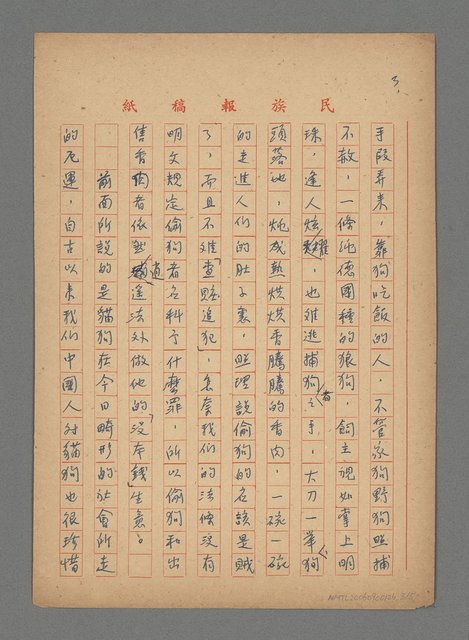 3.
民族報稿紙
手段弄来，靠狗吃飯的人，不管家狗野狗照捕
不赦，一條純德國種的狼狗，飼主視如掌上明
珠，逢人炫耀，也难逃捕狗者之手，大刀一举狗
頭落地，炮成熟烘烘香騰騰的香肉，一碗一碗
的走進人们的肚子裏，照理說偷狗的名該是賊
了，而且不难「查贓追犯」，怎奈我们的法條没有
明文規定偷狗者名科予什麼罪，所以偷狗和出
售香肉者依然逍遙法外做他的「没本錢」生意。
前面所說的是貓狗在今日畸形的社會所走
的厄運，自古以来我们中國人对貓狗也很珍惜
NMTL20060900126 3/5